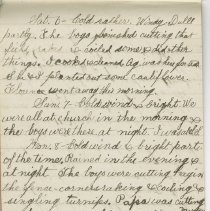 Sat. 6 - Cold rather. Windy Dull
partly. The boys finished cutting that
& cocked some & did other
things. I cooked cleaned up, was her for tea
She & I planted out some cauliflower.
went away his morning.
Sun. 7 - Cold wind & bright. We
were all at church in the morning &
the boys were there at night. I wasn't
Mon. 8 - Cold wind & bright part
of the time, Rained in the evening &
at night. The boys were cutting hay in
the fence corners raking & cocking &
singling turnips. Papa was cutting